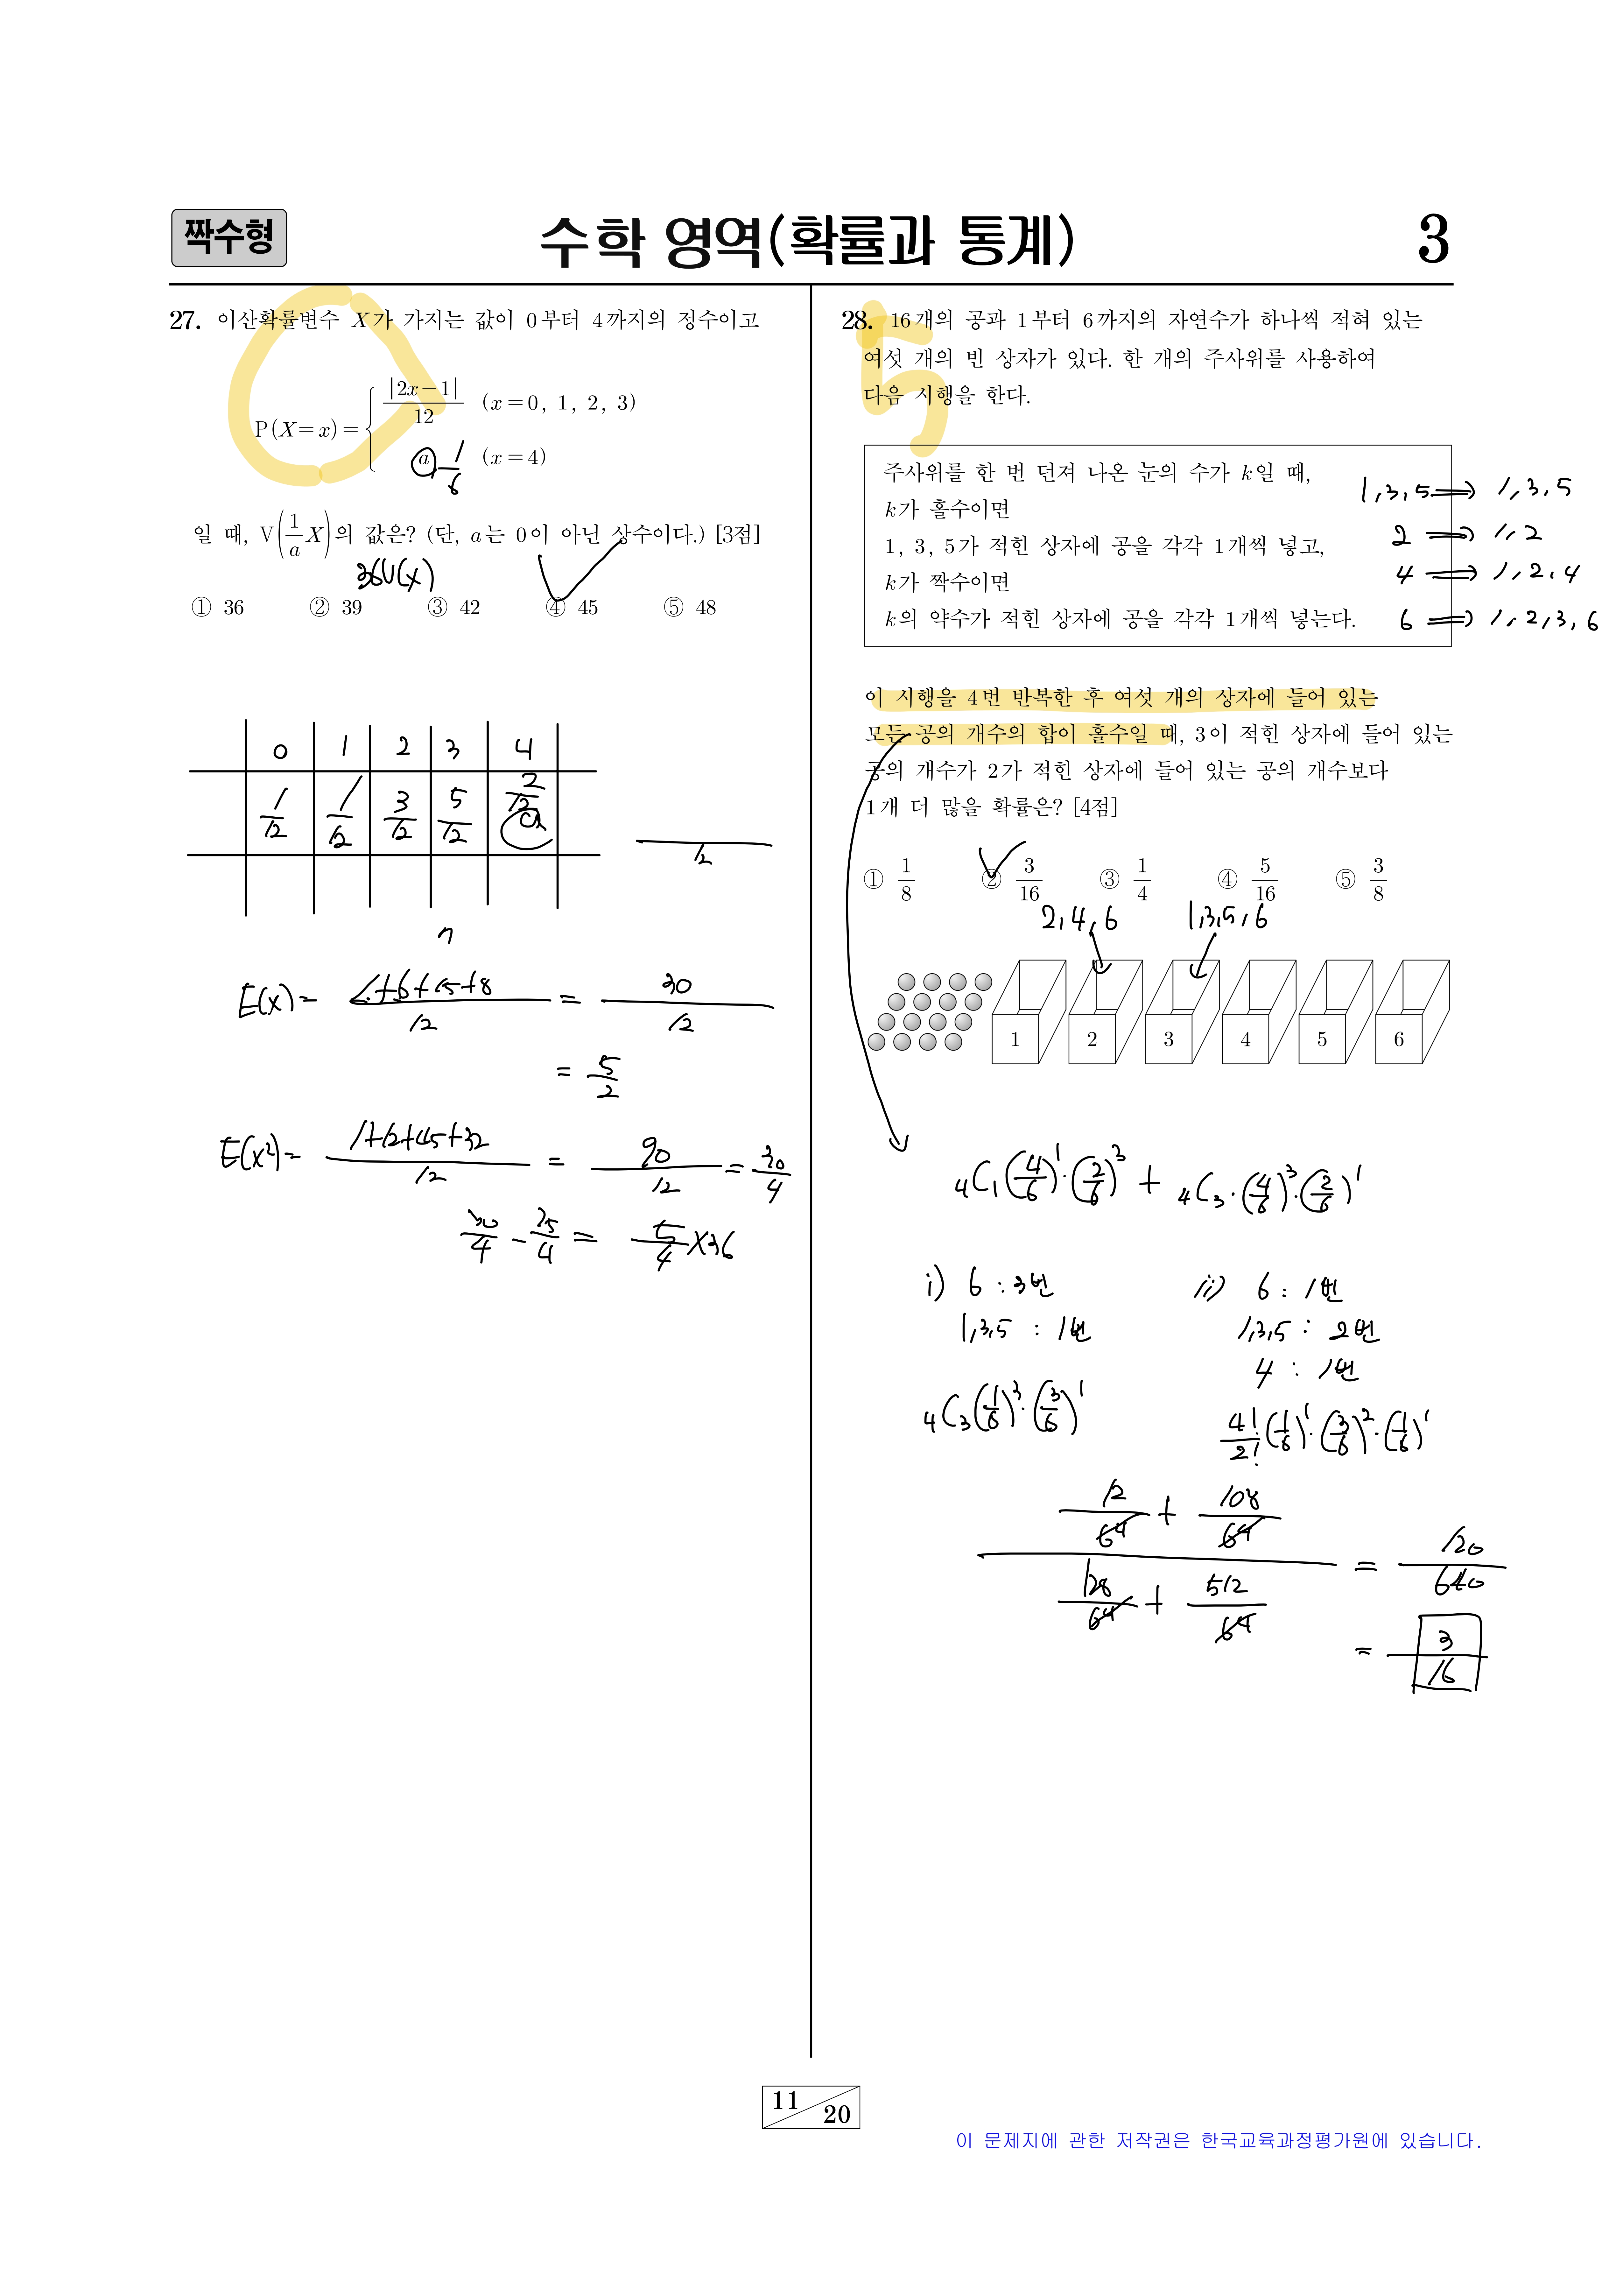 짝수형
수학 영역(확률과 통계)
3
27. 이산확률변수 X가 가지는 값이 0부터 4까지의 정수이고
P(X=x)= |2x-1|/12 (x=0, 1, 2, 3)
a (x=4)
1/6
일 때, V(1/a X)의 값은? (단, a는 0이 아닌 상수이다.) [3점]
36V(x)
① 36 ② 39 ③ 42 ④ 45 ⑤ 48
0 1 2 3 4
1/12 1/12 3/12 5/12 2/12
a
12
E(x)= +6+15+8 /12 = 30/12
= 5/2
E(x²)= 1+12+45+32 /12 = 90/12 = 30/4
30/4 - 25/4 = 5/4 X36
28. 16개의 공과 1부터 6까지의 자연수가 하나씩 적혀 있는
여섯 개의 빈 상자가 있다. 한 개의 주사위를 사용하여
다음 시행을 한다.
5
주사위를 한 번 던져 나온 눈의 수가 k일 때,
k가 홀수이면
1, 3, 5가 적힌 상자에 공을 각각 1개씩 넣고,
k가 짝수이면
k의 약수가 적힌 상자에 공을 각각 1개씩 넣는다.
1,3,5 ⇒ 1,3,5
2 ⇒ 1,2
4 ⇒ 1,2,4
6 ⇒ 1,2,3,6
이 시행을 4번 반복한 후 여섯 개의 상자에 들어 있는
모든 공의 개수의 합이 홀수일 때, 3이 적힌 상자에 들어 있는
공의 개수가 2가 적힌 상자에 들어 있는 공의 개수보다
1개 더 많을 확률은? [4점]
① 1/8 ② 3/16 ③ 1/4 ④ 5/16 ⑤ 3/8
2,4,6 1,3,5,6
1 2 3 4 5 6
₄C₁(4/6)¹·(2/6)³ + ₄C₃·(4/6)³·(2/6)¹
i) 6 : 3번
1,3,5 : 1번
₄C₃(1/6)³·(3/6)¹
ii) 6 : 1번
1,3,5 : 2번
4 : 1번
4!/2!(1/6)¹·(3/6)²·(1/6)¹
12/6⁴ + 108/6⁴
128/6⁴ + 512/6⁴
= 120/640
= 3/16
11
20
이 문제지에 관한 저작권은 한국교육과정평가원에 있습니다.